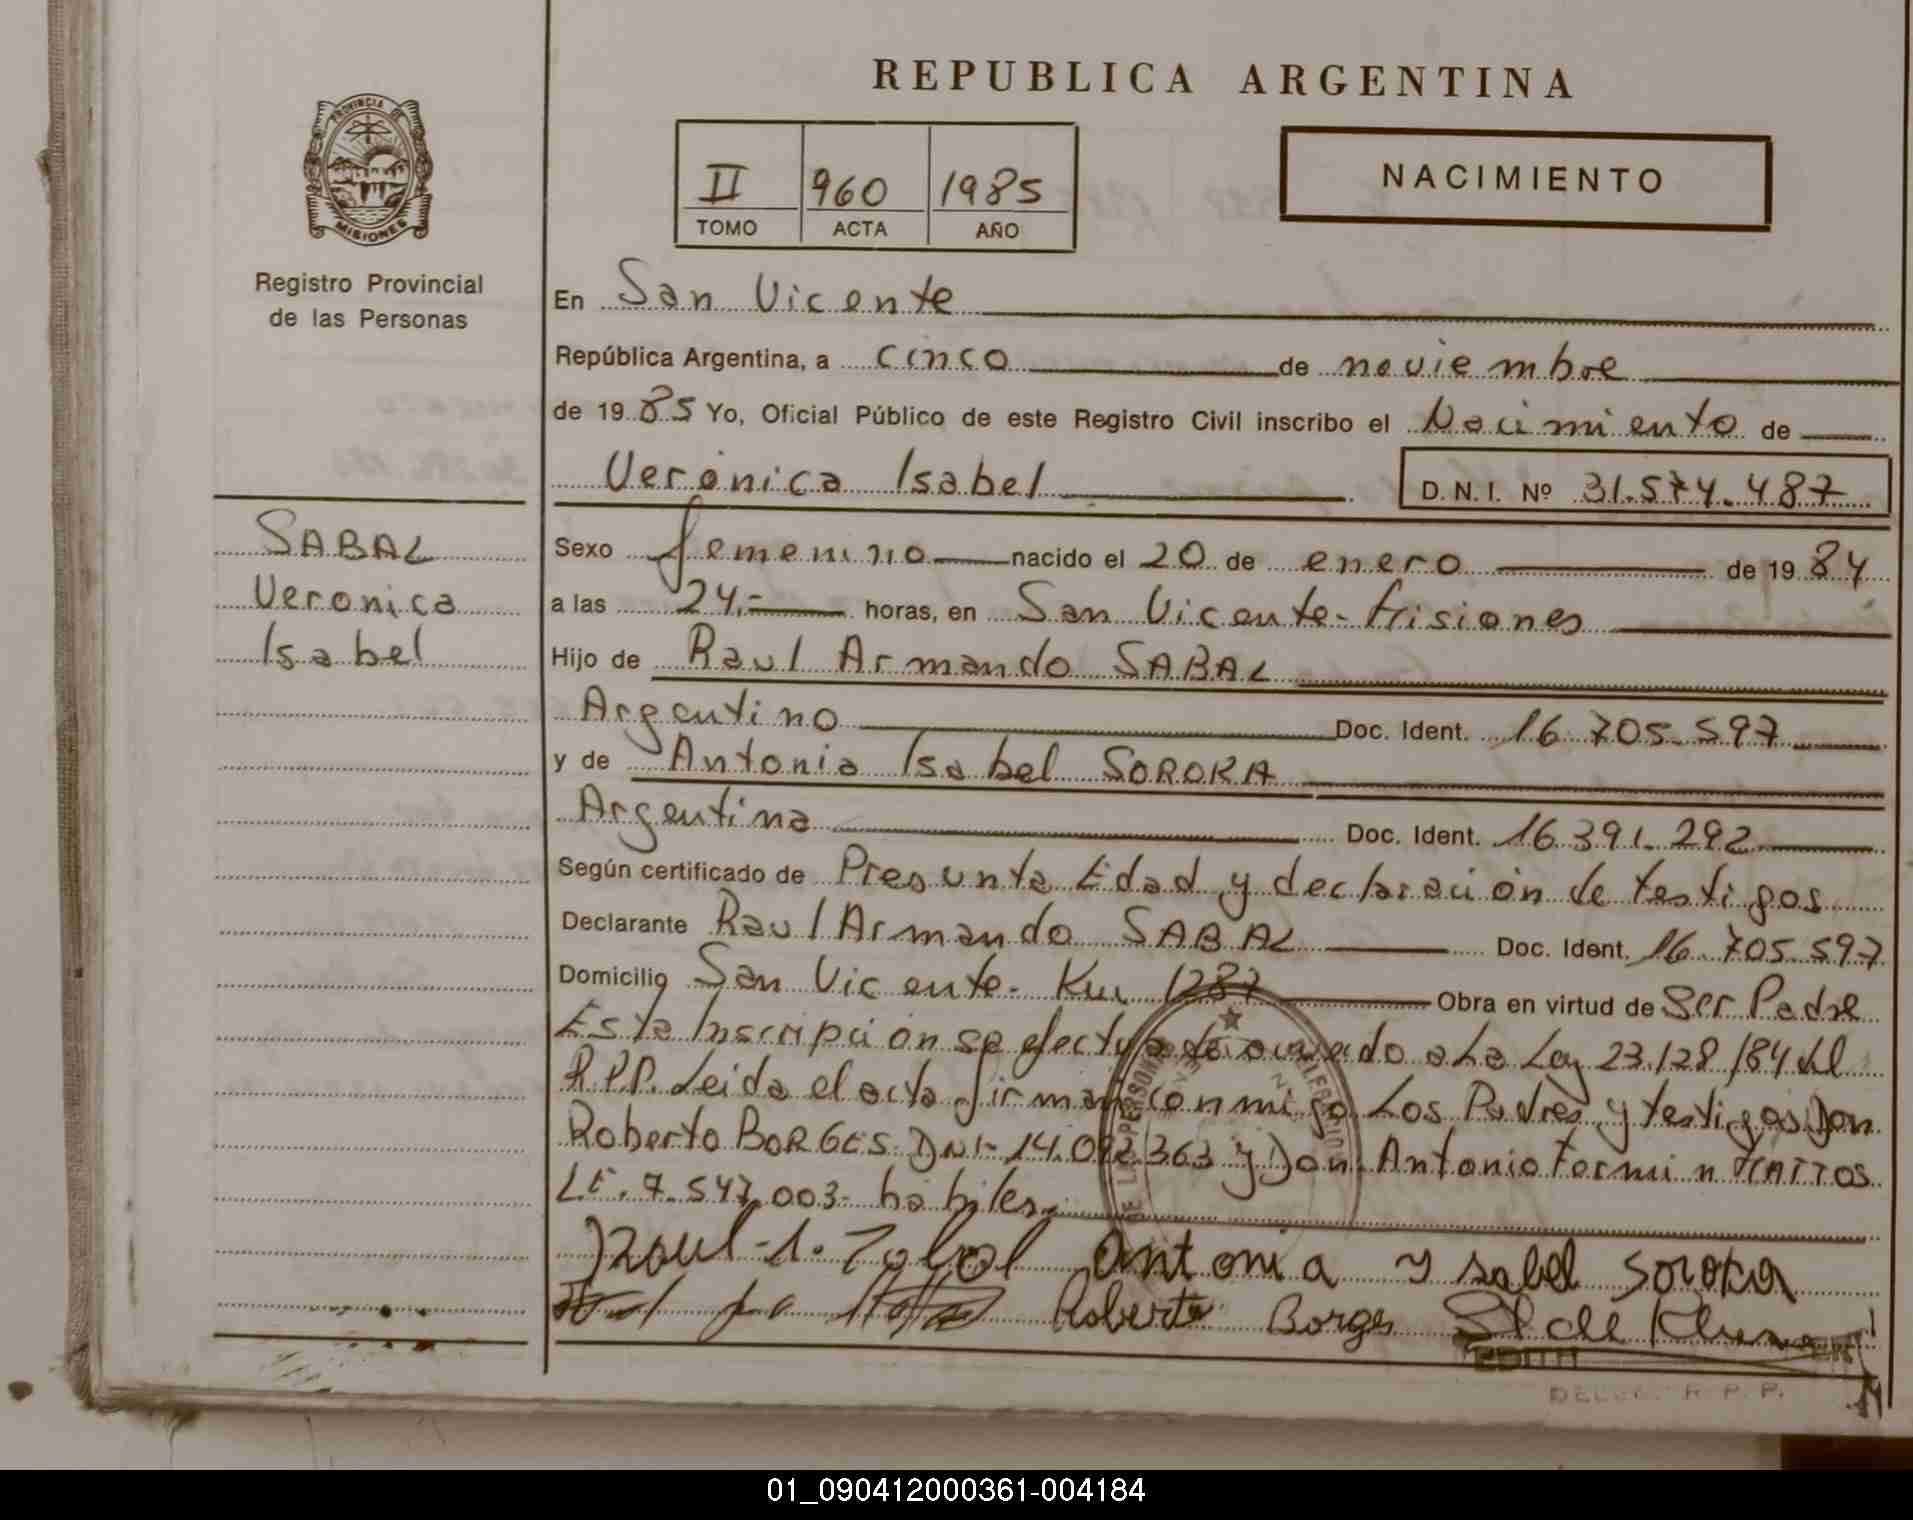 REPUBLICA ARGENTINA
PROVINCIA DE
MISIONES
Registro Provincial
de las Personas
II 960 1985
TOMO ACTA AÑO
NACIMIENTO
En San Vicente
República Argentina, a cinco de noviembre
de 1985 Yo, Oficial Público de este Registro Civil inscribo el Nacimiento de
Verónica Isabel D.N.I. Nº 31.574.487
SABAL
Veronica
Isabel
Sexo femenino nacido el 20 de enero de 1984
a las 24.- horas, en San Vicente-Misiones
Hijo de Raul Armando SABAL
Argentino Doc. Ident. 16.705.597
y de Antonia Isabel SOROKA
Argentina Doc. Ident. 16.391.292
Según certificado de Presunta Edad y declaración de testigos
Declarante Raul Armando SABAL Doc. Ident. 16.705.597
Domicilio San Vicente- Km 1287 Obra en virtud de Ser Padre
Esta Inscripción se efectua de acuerdo a La Ley 23.128/84 del
R.P.P. Leida el acta firman conmigo Los Padres y testigos Don
Roberto BORGES DNI- 14.092.363 y Don Antonio Fermin
LE. 7.547.003- habiles.
Antonia Ysabel Soroka
Roberto Borges
EDITH
DELEG. R. P. P.
01_090412000361-004184